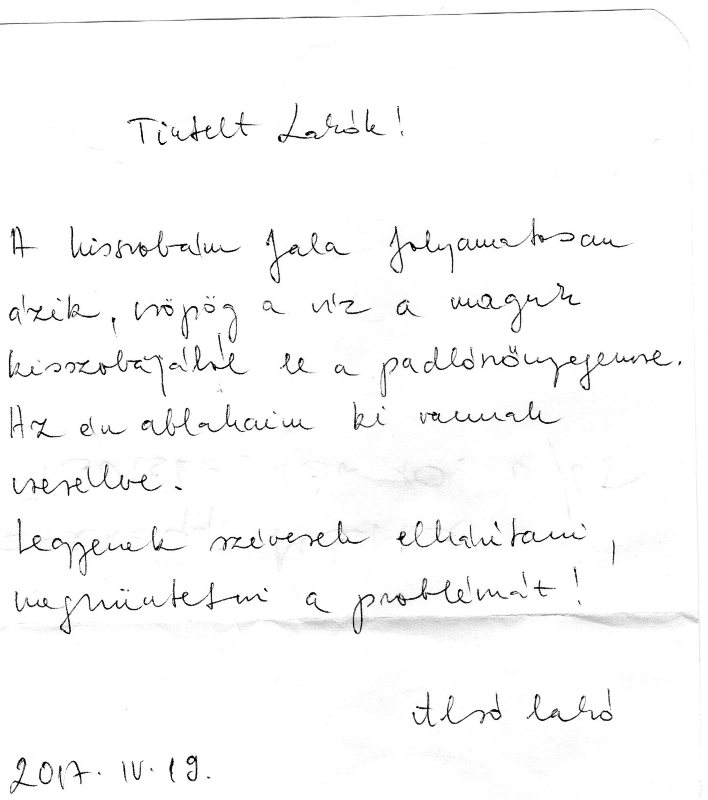 Tisztelt Lakók!
A kisszobám fala folyamatosan
ázik, csöpög a víz a maguk
kisszobájából le a padlószőnyegemre.
Az én ablakaim ki vannak
cserélve.
Legyenek szívesek elhárítani,
megszüntetni a problémát!
Alsó lakó
2017. IV. 19.